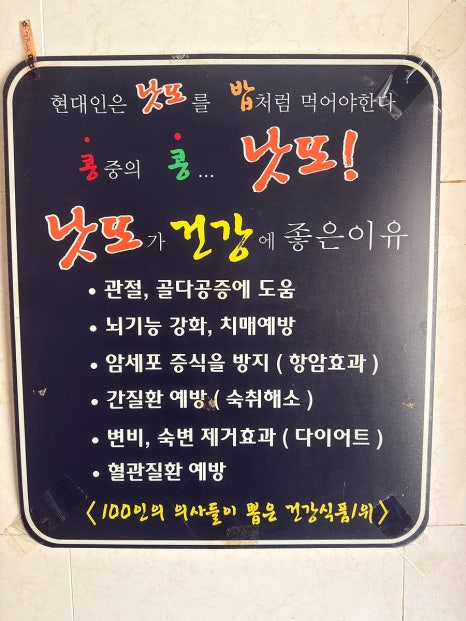 현대인은 낫또를 밥처럼 먹어야한다
콩 중의 콩... 낫또!
낫또가 건강에 좋은이유
• 관절, 골다공증에 도움
• 뇌기능 강화, 치매예방
• 암세포 증식을 방지 ( 항암효과 )
• 간질환 예방 ( 숙취해소 )
• 변비, 숙변 제거효과 ( 다이어트 )
• 혈관질환 예방
<100인의 의사들이 뽑은 건강식품1위>